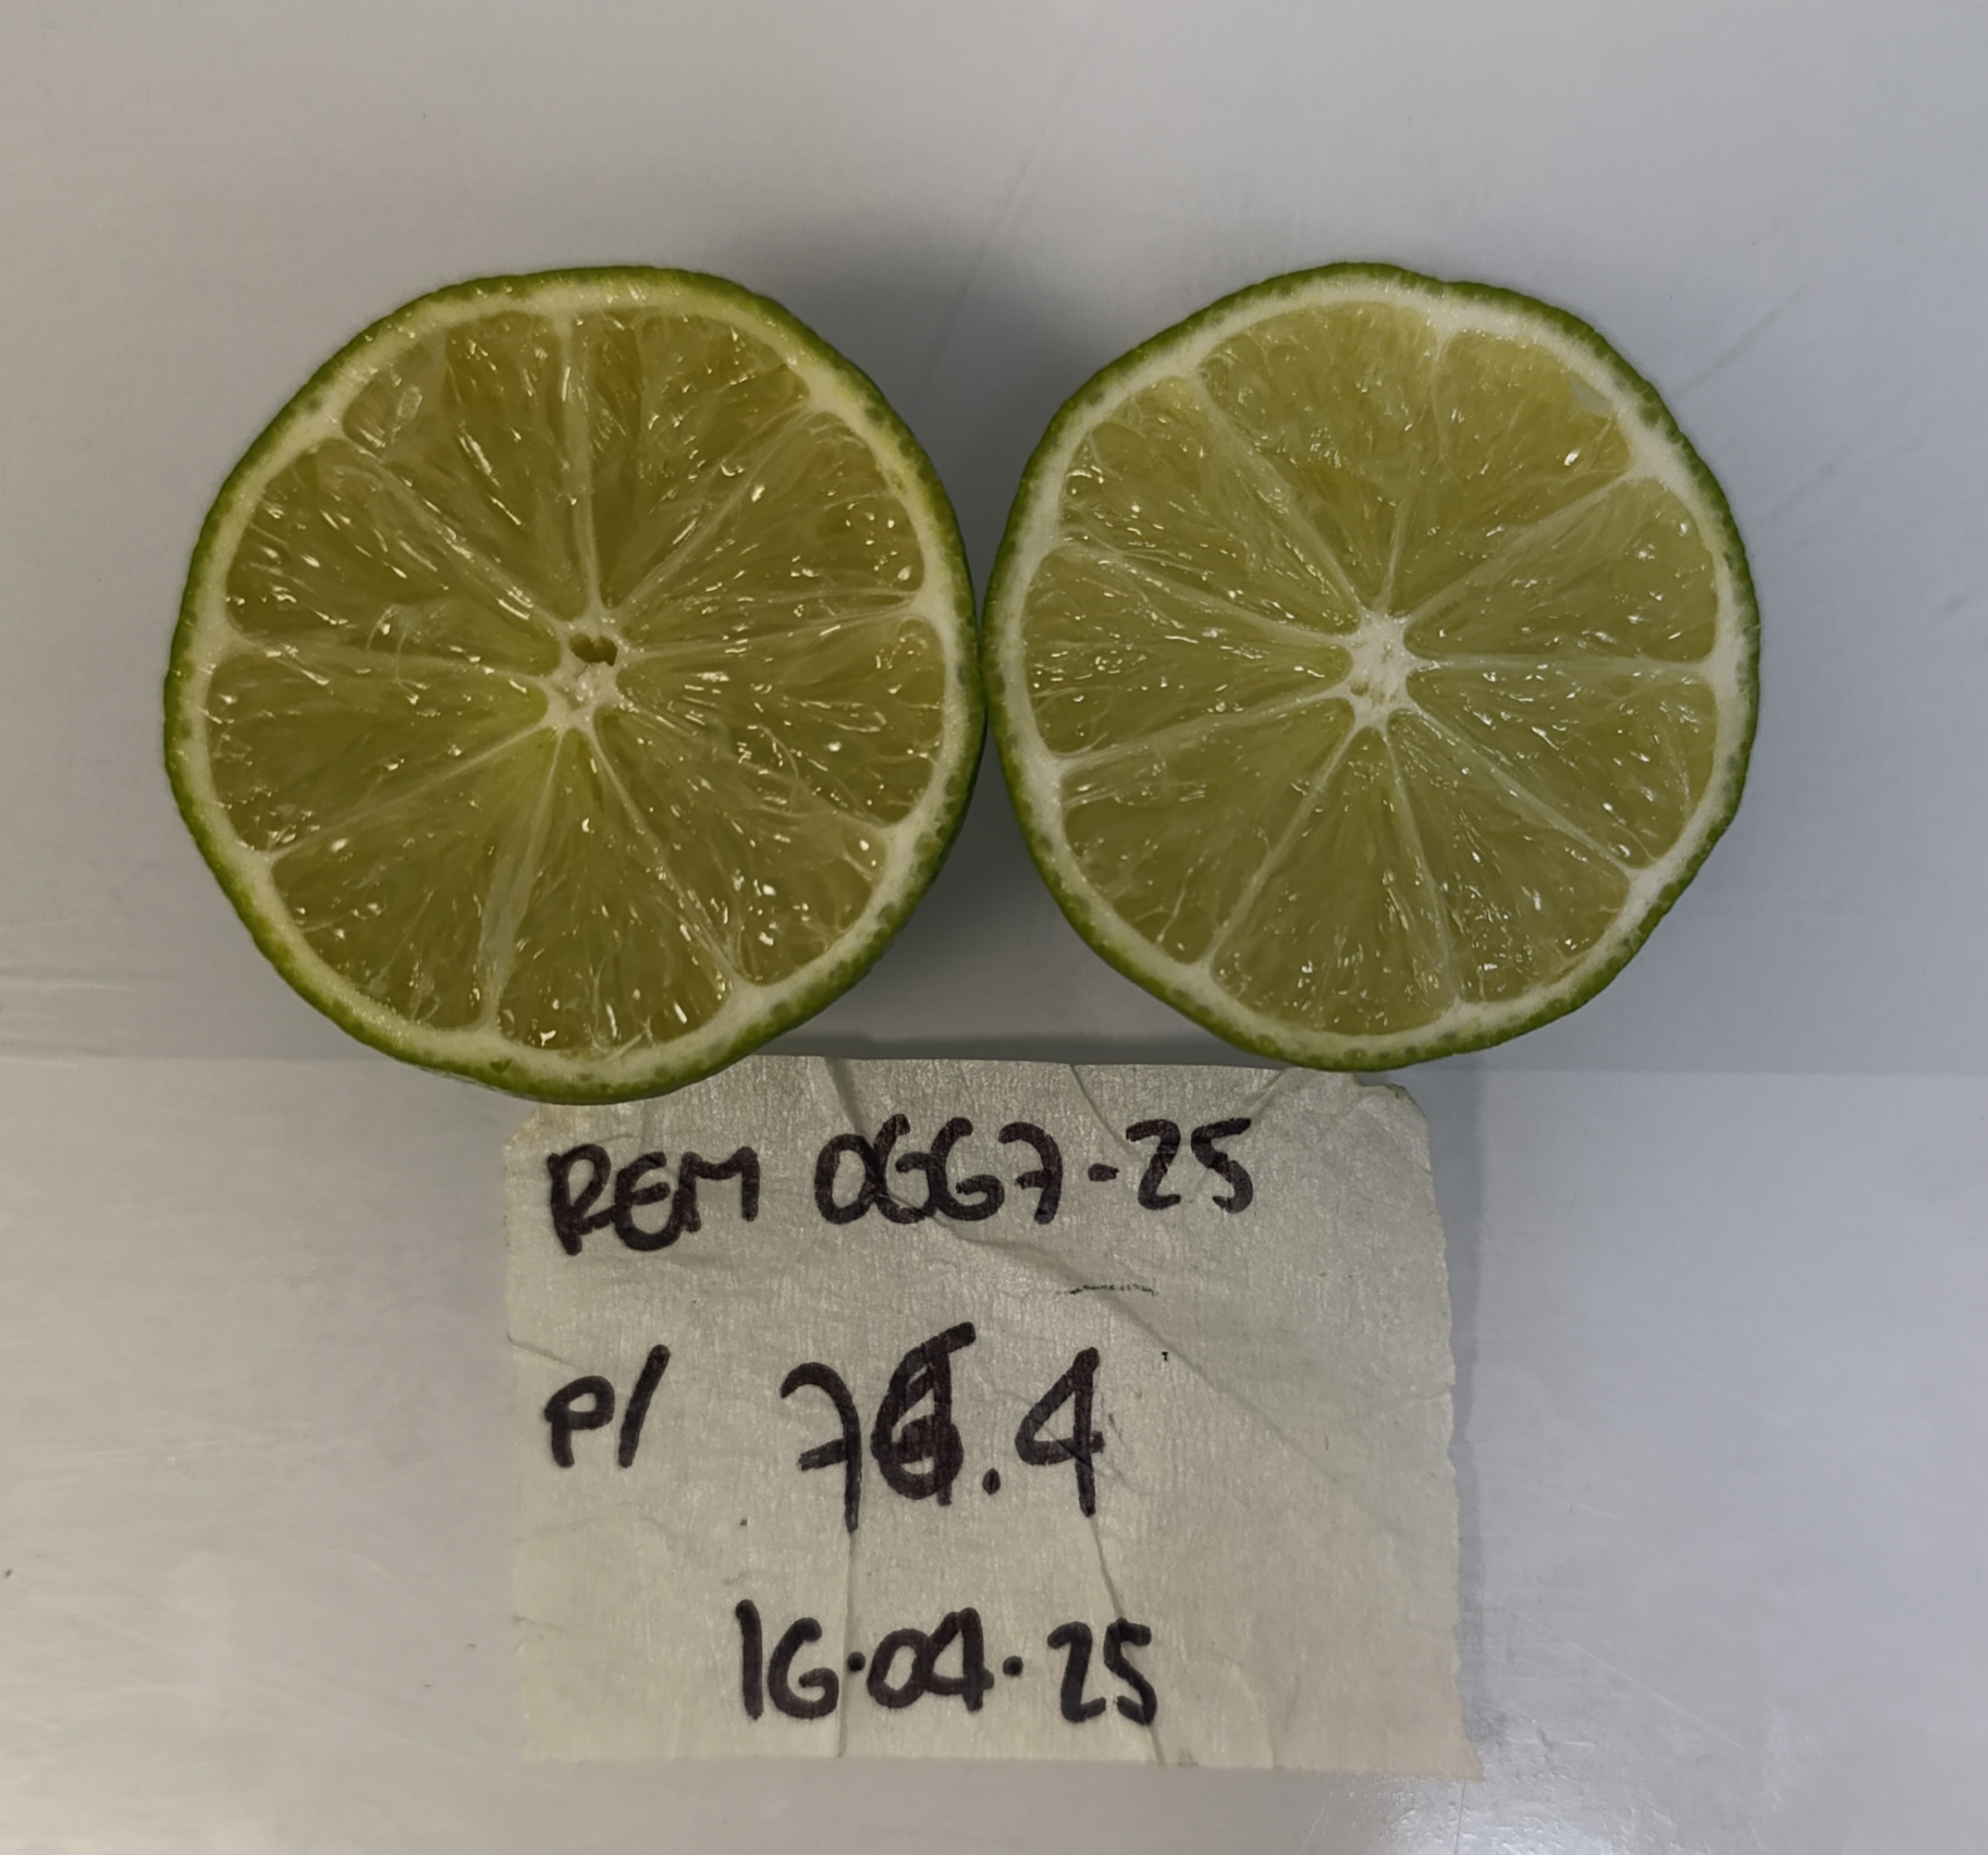 REM 0667-25
P/
16.04.25